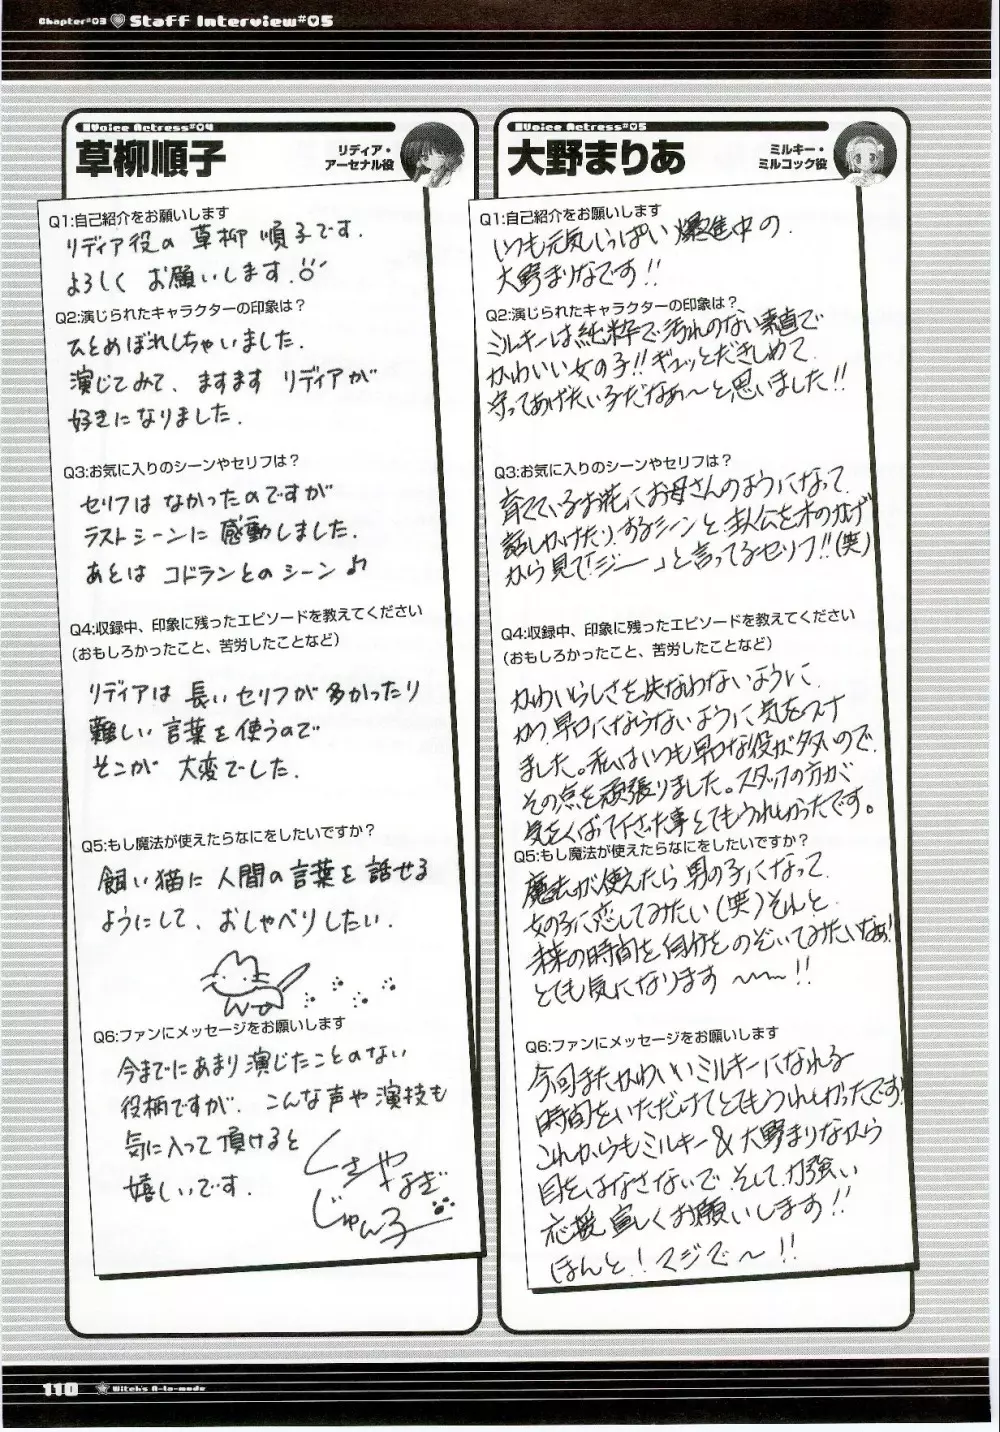 Chapter#03 Staff Interview#05
Voice Actress#04
草柳順子
リディア・
アーセナル役
Q1:自己紹介をお願いします
リディア役の草柳順子です.
よろしくお願いします.
Q2:演じられたキャラクターの印象は？
ひとめぼれしちゃいました.
演じてみて、ますますリディアが
好きになりました.
Q3:お気に入りのシーンやセリフは？
セリフはなかったのですが
ラストシーンに感動しました.
あとはコドランとのシーン♪
Q4:収録中、印象に残ったエピソードを教えてください
（おもしろかったこと、苦労したことなど）
リディアは長いセリフが多かったり
難しい言葉を使うので
そこが大変でした.
Q5:もし魔法が使えたらなにをしたいですか？
飼い猫に人間の言葉を話せる
ようにして、おしゃべりしたい.
Q6:ファンにメッセージをお願いします
今までにあまり演じたことのない
役柄ですが、こんな声や演技も
気に入って頂けると
嬉しいです.
くさやなぎ
じゅん子
Voice Actress#05
大野まりあ
ミルキー・
ミルコック役
Q1:自己紹介をお願いします
いつも元気いっぱい爆進中の
大野まりなです!!
Q2:演じられたキャラクターの印象は？
ミルキーは純粋で汚れのない素直で
かわいい女の子!!ギュッとだきしめて
守ってあげたい子だなぁ〜と思いました!!
Q3:お気に入りのシーンやセリフは？
育てているお花にお母さんのようになって
話しかけたりするシーンと、主人公を木のかげ
から見て「ジー」と言ってるセリフ!!(笑)
Q4:収録中、印象に残ったエピソードを教えてください
（おもしろかったこと、苦労したことなど）
かわいらしさを失なわないように
かつ早口にならないように気をつけ
ました。私はいつも早口な役が多いので、
その点を頑張りました。スタッフの方が
気をくばって下さった事とてもうれしかったです。
Q5:もし魔法が使えたらなにをしたいですか？
魔法が使えたら男の子になって
女の子に恋してみたい(笑)そんと
未来の時間を自分をのぞいてみたいなぁ!
とても気になります〜〜!!
Q6:ファンにメッセージをお願いします
今回またかわいいミルキーになれる
時間をいただけてとてもうれしかったです!
これからもミルキー&大野まりなから
目をはなさないで そして力強い
応援宜しくお願いします!!
ほんと!マジで〜!!
110 Witch's A-la-mode